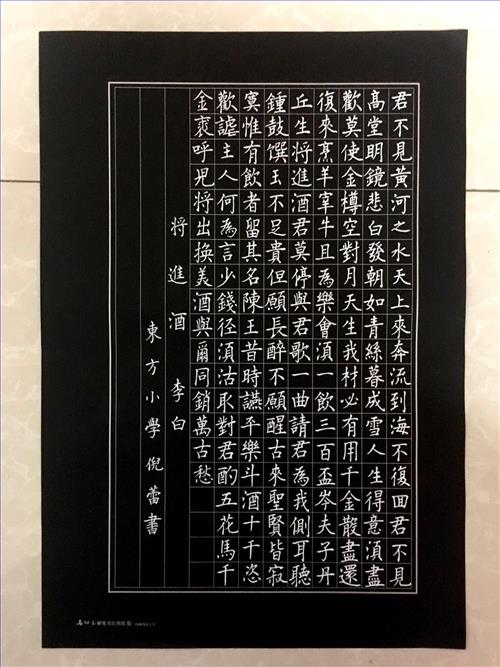 君不見黃河之水天上來奔流到海不復回君不見
高堂明鏡悲白發朝如青絲暮成雪人生得意須盡
歡莫使金樽空對月天生我材必有用千金散盡還
復來烹羊宰牛且為樂會須一飲三百盃岑夫子丹
丘生將進酒君莫停與君歌一曲請君為我側耳聽
鍾鼓饌玉不足貴但願長醉不願醒古來聖賢皆寂
寞惟有飲者留其名陳王昔時讌平樂斗酒十千恣
歡謔主人何為言少錢徑須沽取對君酌五花馬千
金裘呼兒將出換美酒與爾同銷萬古愁
將進酒 李白
東方小學倪蕾書